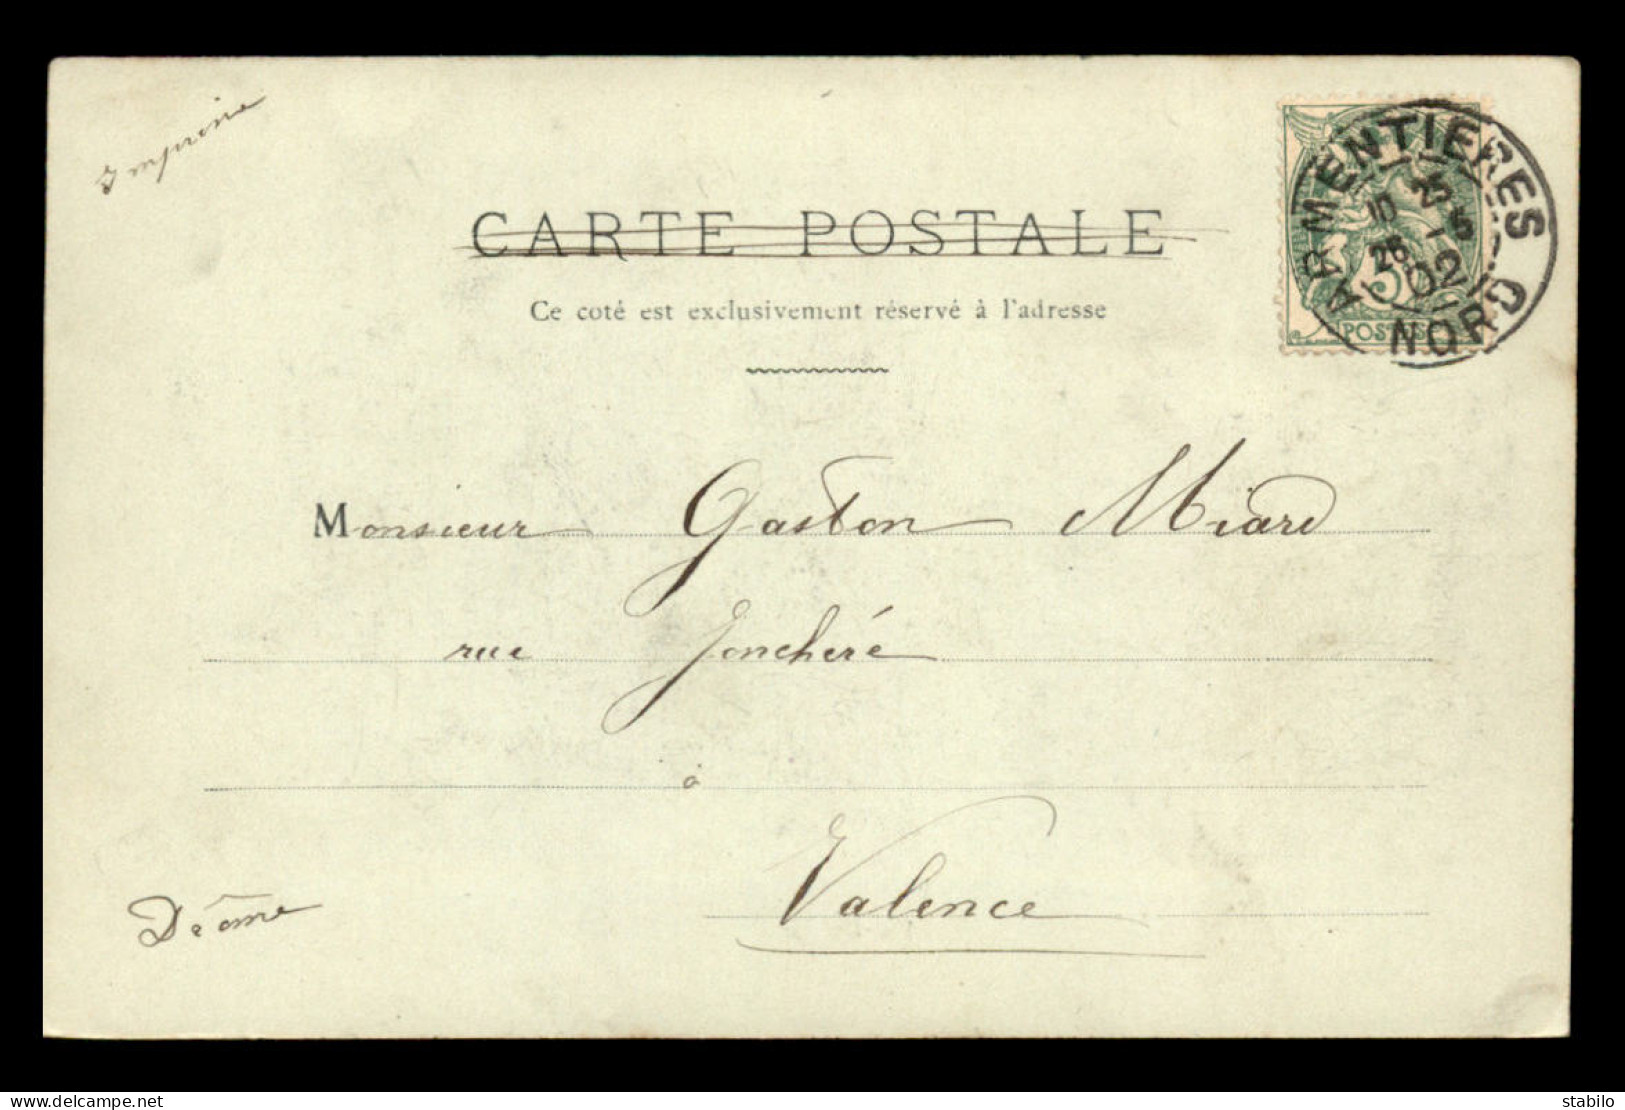 Imprimé
CARTE POSTALE
Ce coté est exclusivement réservé à l'adresse
ARMENTIERES
10 25
26 -5
02
NORD
5
POSTES
Monsieur Gaston Miard
rue Jonchéré
à
Valence
Drôme
www.delcampe.net
stabilo